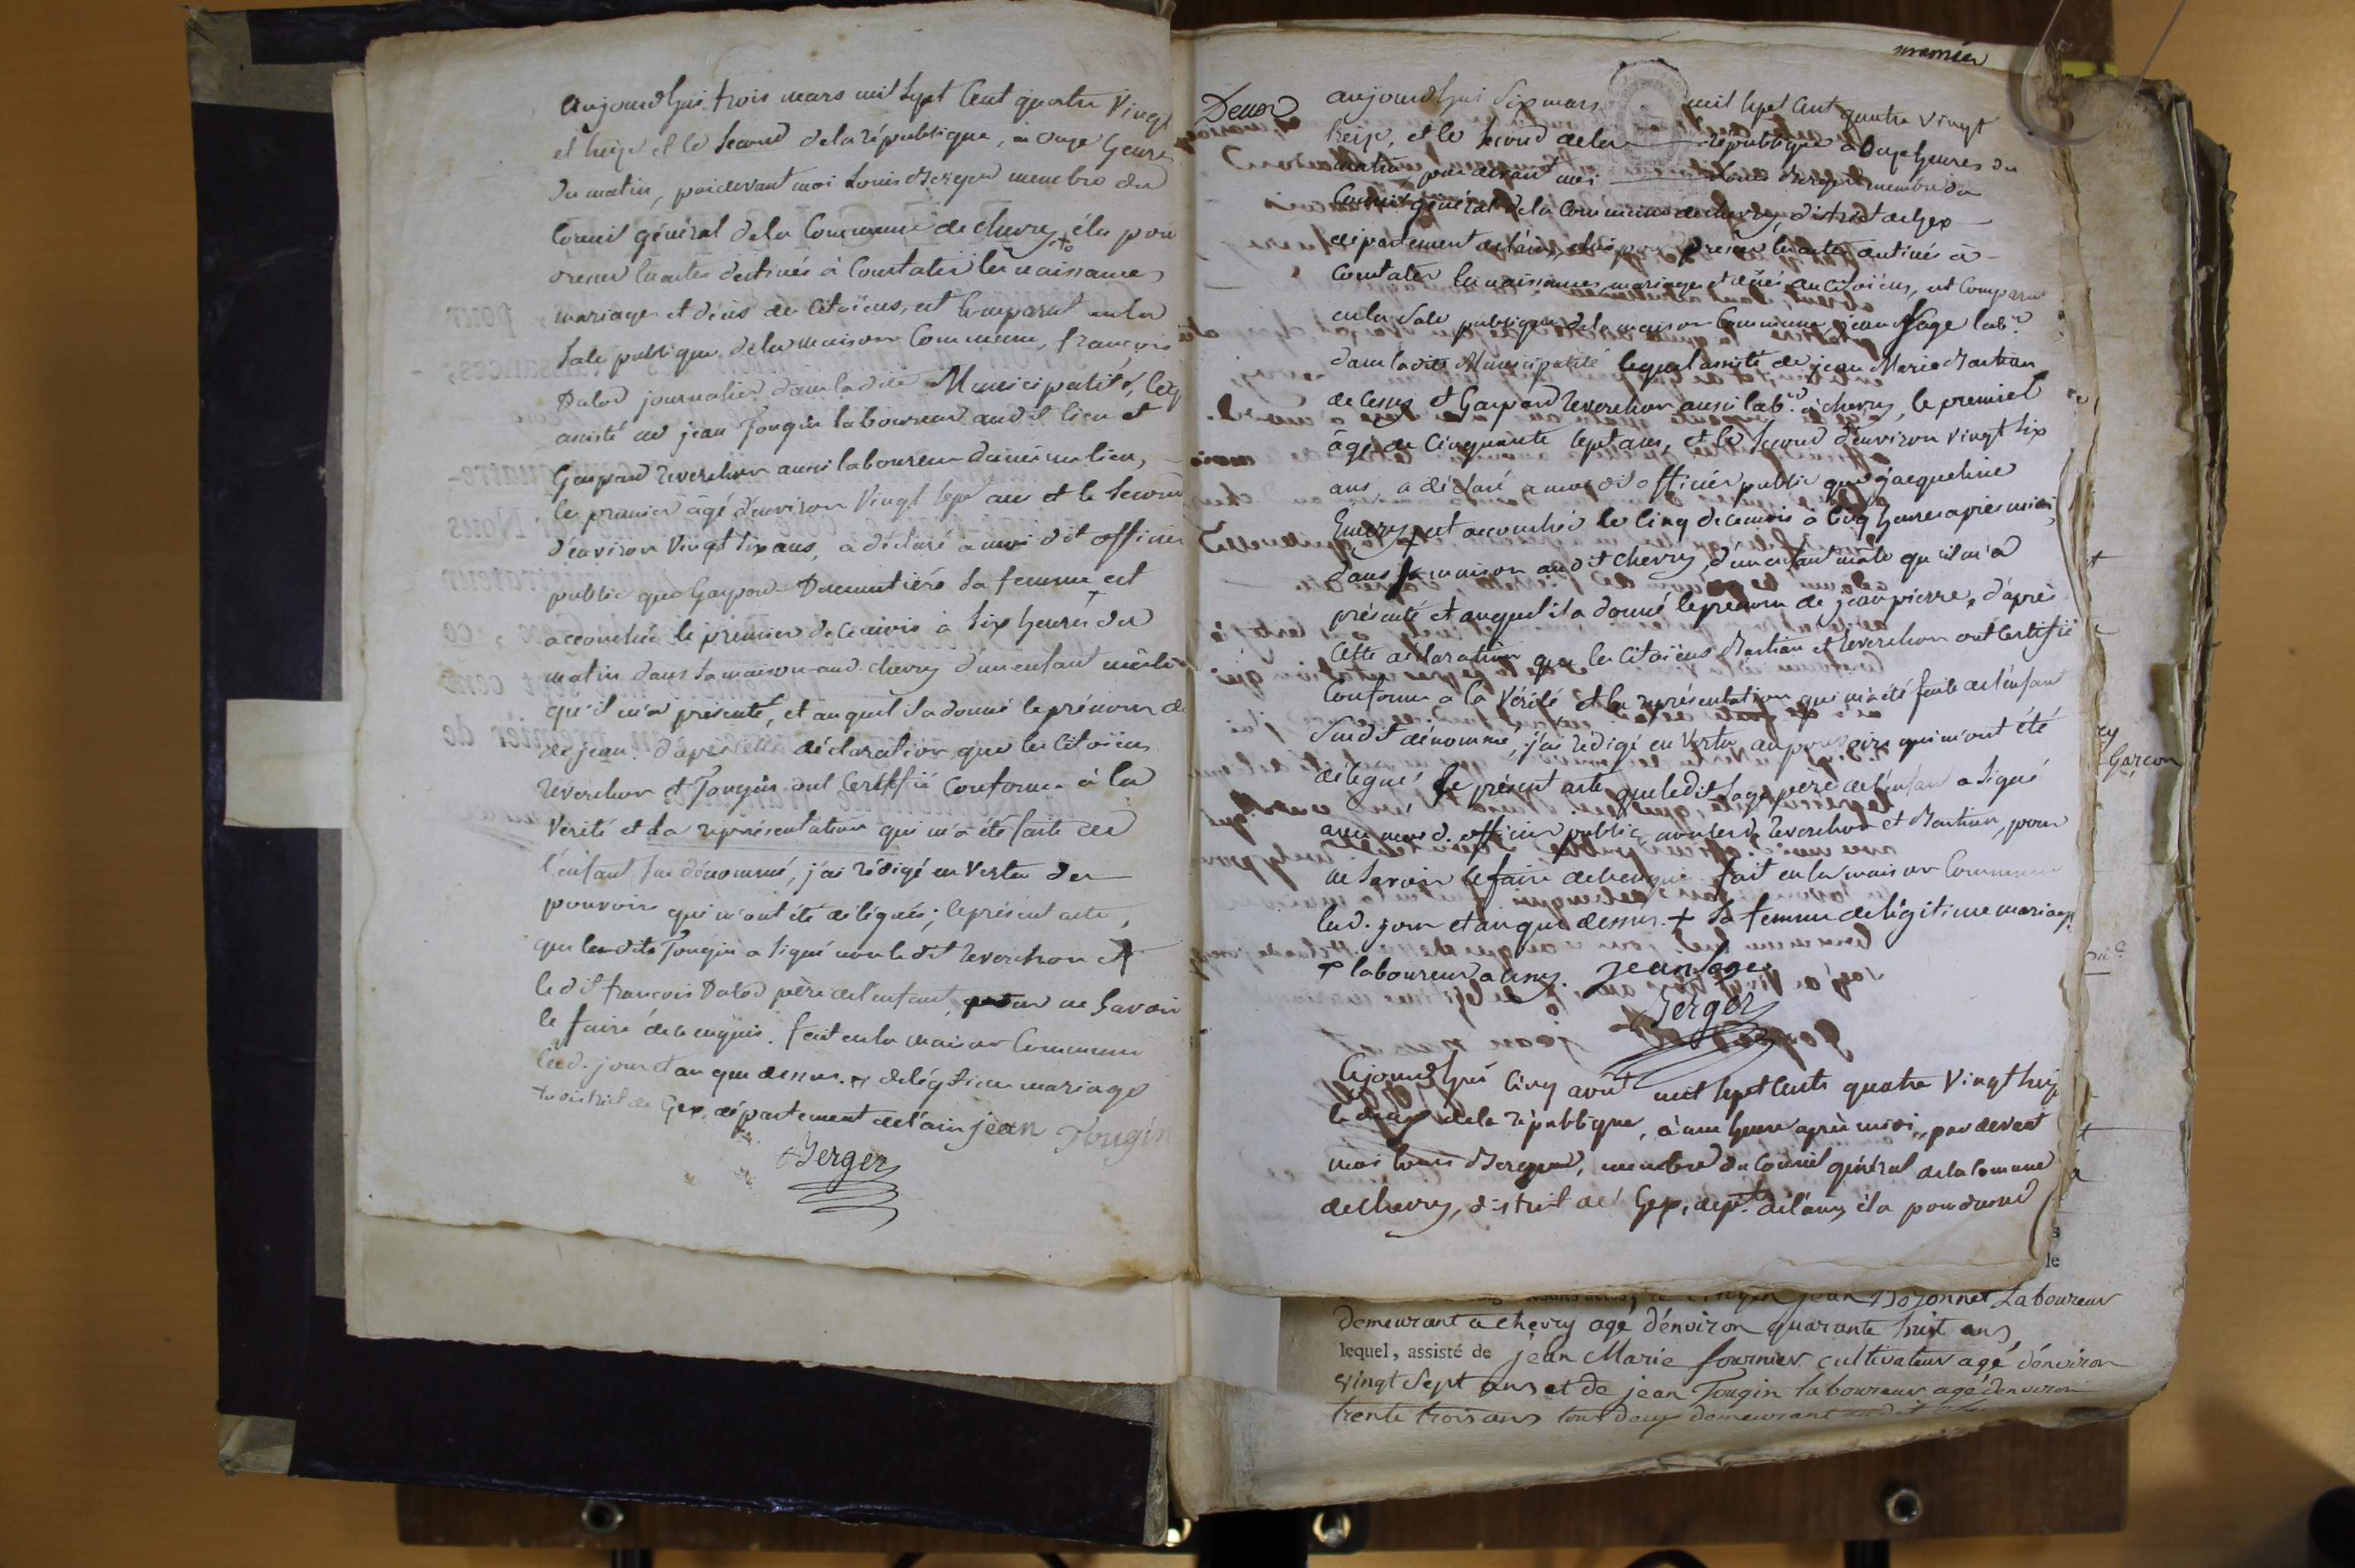 aujourdhui trois mars mil sept Cent quatre Vingt
et treize et le Second de la république, à onze heures
du matin, pardevant moi Louis Berger membre du
Conseil général de la Commune de chevry +o élu pour
dresser les actes destinés à Constater les naissances
mariages et décès des Citoïens, est Comparut en la
Sale publique de la maison Commune, françois
Dalod journalier dans la dite Municipalité, leq
assisté de jean Fongin laboureur audit lieu et
Gaspard Reverchon aussi laboureur du même lieu,
le premier âgé d'environ Vingt Sept ans et le Second
d'environ Vingt Six ans, a déclaré a moi dit officier
public que Gaspard Dumentière sa femme + est
accouchée le premier de ce mois à Six heures du
matin dans sa maison aud. chevry d'un enfant mâle
qu'il m'a présenté, et auquel il a donné le prénom de
de jean. d'après cette déclaration que les Citoïens
Reverchon et Fongin ont Certifié Conforme à la
Vérité et la représentation qui m'a été faite de
l'enfant sus dénommé, j'ai rédigé en Vertu des
pouvoirs qui m'ont été délégués; le présent acte,
que ledit Fongin a Signé non ledit Reverchon et
le dit francois Dalod père de l'enfant, pour ne Savoir
le faire de ce enquis. fait en la maison Commune
led. jour et an que dessus. + de légitime mariage
+o district de Gex, département de l'ain jean Fongin
Berger
mamier
Deux
aujourdhui Six mars mil Sept Cent quatre Vingt
treize, et le Second de la république a onze heures du
matin, par devant moi Louis Berger membre du
Conseil général de la Commune de chevry, district de Gex
département de l'ain, élu pour dresser les actes destinés à
Constater les naissances, mariages et décès des Citoïens, est Comparut
en la Sale publique de la maison Commune jean Sage lab.r
dans la dite Municipalité lequel assisté de jean Marie Bastian
de Cessy + et Gaspard Reverchon aussi lab.r à chevry, le premier
âgé de Cinquante Sept ans, et le Second d'environ Vingt Six
ans, a déclaré a moi dit officier public que jacqueline
Emery + est accouchée le Cinq de ce mois à Cinq heures après midi
dans sa maison audit chevry, d'un enfant mâle qu'il m'a
présenté et auquel il a donné le prénom de jean pierre, d'après
Cette déclaration que les Citoïens Bastian et Reverchon ont Certifié
Conforme a la Vérité et la représentation qui m'a été faite de l'enfant
Susdit dénommé, j'ai rédigé en Vertu des pouvoirs qui m'ont été
délégués le présent acte que ledit Sage père de l'enfant a Signé
avec moi d. officier public, non lesd. Reverchon et Bastian, pour
ne Savoir le faire de ce enquis. fait en la maison Commune
led. jour et an que dessus. + Sa femme de légitime mariage
+ laboureur a Cessy. Jean Sage
Berger
Aujourdhui Cinq avril mil Sept Cents quatre Vingt treize
le deux de la république, à une heure après midi, par devant
moi Louis Berger, membre du Conseil général de la Comune
de chevry, district de Gex, dept. de l'ain, élu pour dresser
Garcon
le
Citoyen jean Bozonnet Laboureur
demeurant a chevry agé d'environ quarante huit ans
lequel, assisté de jean Marie fournier cultivateur agé d'environ
vingt sept ans et de jean Fongin laboureur agé d'environ
trente trois ans tous deux demeurant audit